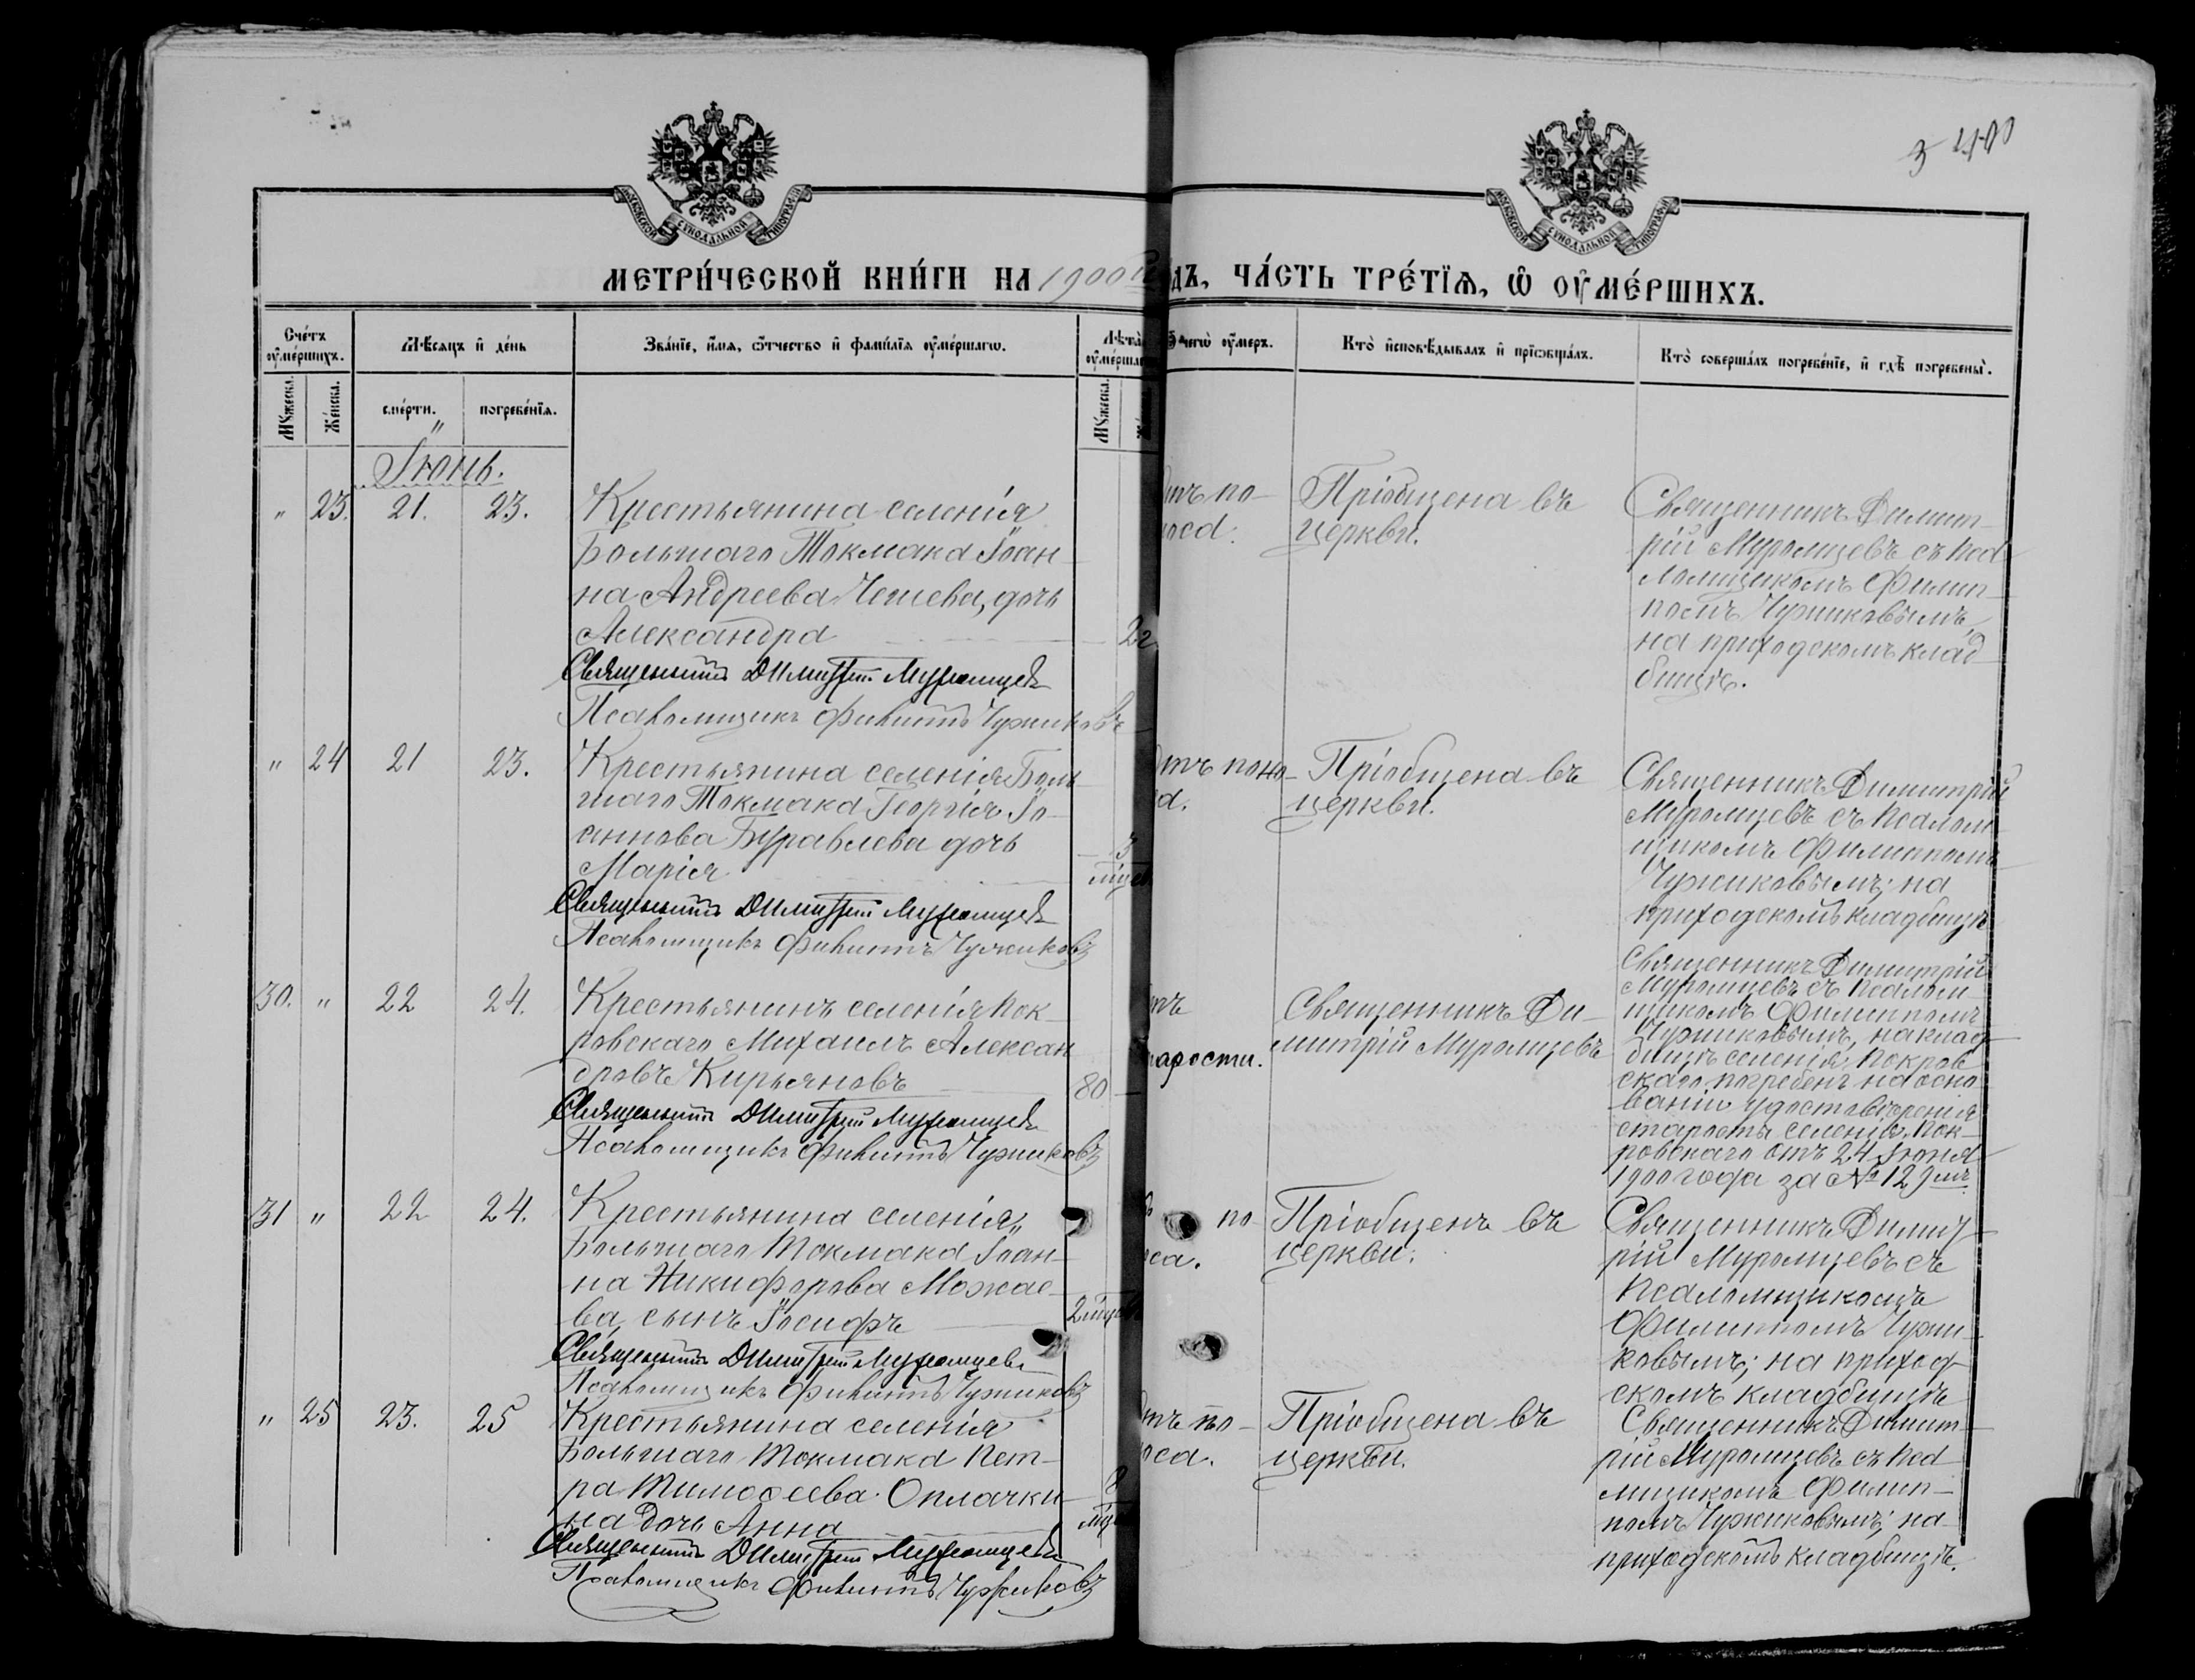 3 400
МОСКОВСКОЙ СѴНОДАЛЬНОЙ ТИПОГРАФІИ
МОСКОВСКОЙ СѴНОДАЛЬНОЙ ТИПОГРАФІИ
МЕТРИ́ЧЕСКОЙ КНИ́ГИ НА 1900 дъ, ЧА́СТЬ ТРЕ́ТЇѦ, Ѡ҆ ОУ҆МЕ́РШИХЪ.
Сче́тъ оу҆ме́ршихъ.
Мѣ́сяцъ и҆ де́нь
Зва́нїе, и҆́мя, ѻ҆́тчество и҆ фами́лїя оу҆ме́ршагѡ.
Лѣта̀ оу҆ме́рша
чегѡ̀ оу҆́меръ.
Кто̀ и҆сповѣ́дывалъ и҆ прїѡбща́лъ.
Кто̀ соверша́лъ погребе́нїе, и҆ гдѣ̀ погребены̀.
Мꙋ́жеска.
Же́нска.
сме́рти.
погребе́нїя.
Мꙋ́жеска.
Іюнь.
" 23. 21. 23.
Крестьянина селенія
Большаго Токмака Іоан-
на Андреева Чешева, дочь
Александра
Священникъ Димитрій Муромцевъ
Псаломщикъ Филиппъ Чужиковъ
отъ по-
носа.
Пріобщена въ
церкви.
Священникъ Димит-
рій Муромцевъ съ пса-
ломщикомъ Филип-
помъ Чужиковымъ,
на приходскомъ клад-
бищѣ.
" 24 21 23.
Крестьянина селенія Боль-
шаго Токмака Георгія Іо-
аннова Буравлева дочь
Марія
3
мѣсяц
Священникъ Димитрій Муромцевъ
Псаломщикъ Филиппъ Чужиковъ
отъ поно-
са.
Пріобщена въ
церкви.
Священникъ Димитрій
Муромцевъ съ псалом-
щикомъ Филиппомъ
Чужиковымъ; на
приходскомъ кладбищѣ
30. " 22 24.
Крестьянинъ селенія Пок-
ровскаго Михаилъ Алексан-
дровъ Кирьяновъ
80
Священникъ Димитрій Муромцевъ
Псаломщикъ Филиппъ Чужиковъ
отъ
старости.
Священникъ Ди-
митрій Муромцевъ
Священникъ Димитрій
Муромцевъ съ псалом-
щикомъ Филиппомъ
Чужиковымъ, на клад-
бищѣ селенія Покров-
скаго погребенъ на осно-
ваніи удостовѣренія
старосты селенія Пок-
ровскаго отъ 24 Іюня
1900 года за № 129мъ.
31 " 22 24.
Крестьянина селенія
Большаго Токмака Іоан-
на Никифорова Можае-
ва, сынъ Іосифъ
2 мѣсяц
Священникъ Димитрій Муромцевъ
Псаломщикъ Филиппъ Чужиковъ
по-
носа.
Пріобщенъ въ
церкви.
Священникъ Димит-
рій Муромцевъ съ
псаломщикомъ
Филиппомъ Чужи-
ковымъ; на приход-
скомъ кладбищѣ
" 25 23. 25
Крестьянина селенія
Большаго Токмака Пет-
ра Тимоѳеева Оплачки-
на дочь Анна
8
мѣс
Священникъ Димитрій Муромцевъ
Псаломщикъ Филиппъ Чужиковъ
отъ по-
носа.
Пріобщена въ
церкви.
Священникъ Димит-
рій Муромцевъ съ пса-
мщикомъ Филип-
помъ Чужиковымъ; на
приходскомъ кладбищѣ.